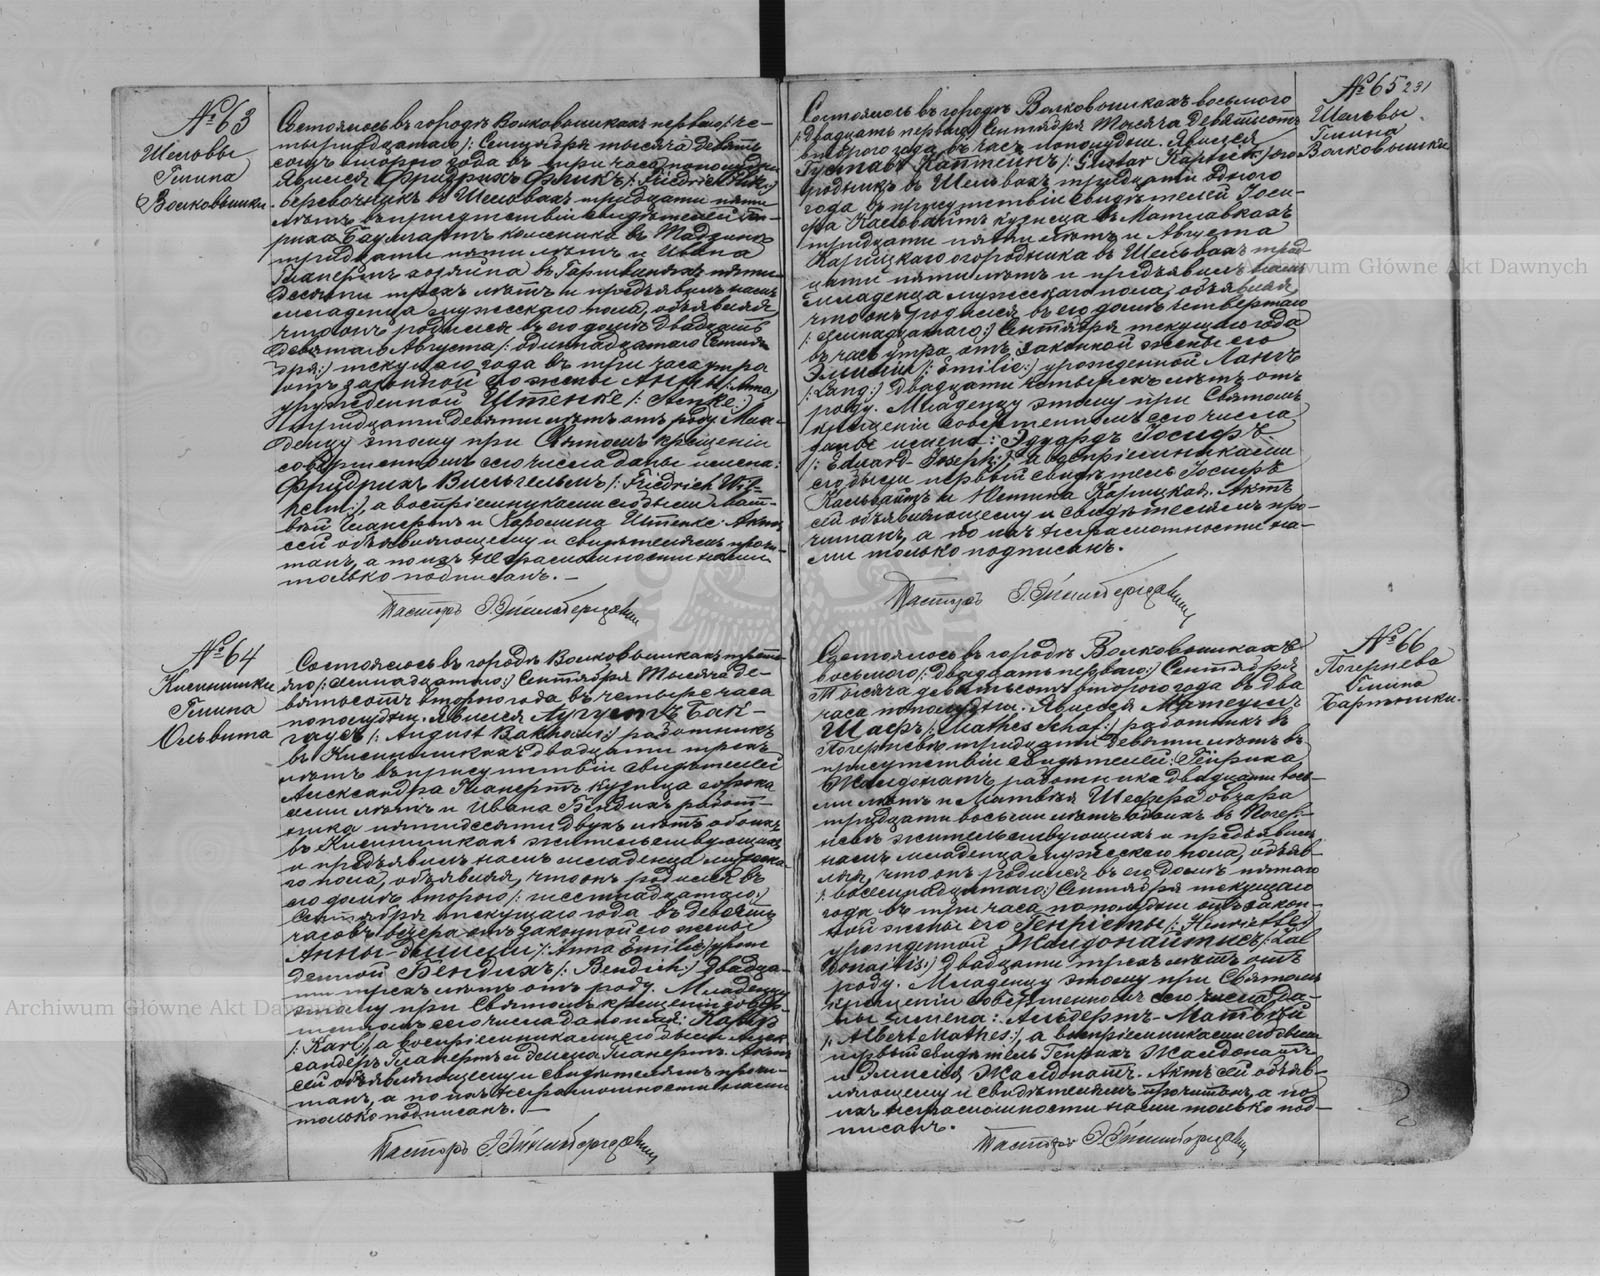 № 63
Шельвы
Гмина
Волковышки.
Состоялось въ городѣ Волковышкахъ перваго /: че-
тырнадцатаго :/ Сентября тысяча девять
сотъ второго года въ три часа пополудни
Явился Фридрихъ Фликъ /: Friedrich Flik :/
въ Шельвахъ тридцати пяти
лѣтъ въ присутствіи свидѣтелей Ген-
риха Баумгартъ колесника въ
тридцати пяти лѣтъ и Ивана
Гланертъ хозяина въ пяти-
десяти трехъ лѣтъ и предъявилъ намъ
младенца мужескаго пола, объявляя
что онъ родился въ его домѣ двадцать
девятаго Августа /: одиннадцатаго Сентя-
бря :/ текущаго года въ три часа утра
отъ законной его жены Анны /: Anna :/
урожденной Штенке /: Stenke :/
тридцати девяти лѣтъ отъ роду. Мла-
денцу этому при Святомъ крещеніи
совершенномъ сего числа даны имена:
Фридрихъ Вильгельмъ /: Friedrich Wil-
helm :/, а воспріемниками его были
Гланертъ и Каролина Штенке. Актъ
сей объявляющему и свидѣтелямъ прочи-
танъ, а по ихъ неграмотности нами
только подписанъ. —
Пасторъ
№ 64
Кисинишки
Гмина
Ольвита
Состоялось въ городѣ Волковышкахъ треть-
яго /: шестнадцатаго :/ Сентября тысяча де-
вятьсотъ второго года въ четыре часа
пополудни. Явился Августъ Бак-
гаусъ /: August Bakhaus :/ работникъ
въ Кисинишкахъ двадцати трехъ
лѣтъ въ присутствіи свидѣтелей
Александра Гланертъ кузнеца сорока
лѣтъ и Ивана Бендихъ работ-
ника пятидесяти двухъ лѣтъ обоихъ
въ Кисинишкахъ жительствующихъ
и предъявилъ намъ младенца мужска-
го пола, объявляя, что онъ родился въ
его домѣ второго /: пятнадцатаго :/
Сентября текущаго года въ девять
часовъ вечера отъ законной его жены
Анны-Эмиліи /: Anna Emilie :/ урож-
денной Бендихъ /: Bendich :/ двадца-
ти трехъ лѣтъ отъ роду. Младенцу
этому при Святомъ крещеніи совер-
шенномъ сего числа дано имя: Карлъ
/: Karl :/, а воспріемниками его были Алек-
сандеръ Гланертъ и Эмилія Гланертъ. Актъ
сей объявляющему и свидѣтелямъ прочи-
танъ, а по ихъ неграмотности нами
только подписанъ. —
Пасторъ
№ 65 231
Шельвы
Гмина
Волковышки
Состоялось въ городѣ Волковышкахъ восьмого
/: двадцать перваго :/ Сентября тысяча девятьсотъ
второго года въ часъ пополудни. Явился
Густавъ /: Gustav :/ ого-
родникъ въ Шельвахъ тридцати одного
года въ присутствіи свидѣтелей Іоси-
фа Кальвайтъ кузнеца въ Матлавкахъ
тридцати пяти лѣтъ и Августа
Карицкаго огородника въ Шельвахъ трид-
цати пяти лѣтъ и предъявилъ намъ
младенца мужескаго пола, объявляя
что онъ родился въ его домѣ четвертаго
/: семнадцатаго :/ Сентября текущаго года
въ часъ утра отъ законной жены его
Эмиліи /: Emilie :/ урожденной Лангъ
/: Lang :/ двадцати четырехъ лѣтъ отъ
роду. Младенцу этому при Святомъ
крещеніи совершенномъ сего числа
даны имена: Эдуардъ Іосифъ
/: Eduard-Joseph :/, а воспріемниками
его были первый свидѣтель Іосифъ
Кальвайтъ и Карицкая. Актъ
сей объявляющему и свидѣтелямъ про-
читанъ, а по ихъ неграмотности на-
ми только подписанъ.
Пасторъ
№ 66
Погернева
Гмина
Бартники.
Состоялось въ городѣ Волковышкахъ
восьмого /: двадцать перваго :/ Сентября
тысяча девятьсотъ второго года въ два
часа пополудни. Явился
Шаеръ /: Mathes :/ работникъ въ
Погерневѣ тридцати девяти лѣтъ въ
присутствіи свидѣтелей: Генриха
Жалдонатъ работника двадцати восьми
лѣтъ и Матвѣя овчара
тридцати восьми лѣтъ обоихъ въ Погер-
невѣ жительствующихъ и предъявилъ
намъ младенца мужескаго пола, объяв-
ляя, что онъ родился въ его домѣ пятаго
/: восемнадцатаго :/ Сентября текущаго
года въ три часа пополудни отъ закон-
ной жены его Генріеты /: Henriette :/
урожденной Жалдонайтисъ /: Zal
donaitis :/ двадцати трехъ лѣтъ отъ
роду. Младенцу этому при Святомъ
крещеніи совершенномъ сего числа да-
ны имена: Альбертъ-Матвѣй
/: Albert Mathes :/, а воспріемниками его были
первый свидѣтель Генрихъ Жалдонатъ
и Эмилія Жалдонатъ. Актъ сей объяв-
ляющему и свидѣтелямъ прочитанъ, а по
ихъ неграмотности нами только под-
писанъ.
Пасторъ
Archiwum Główne Akt Dawnych
Archiwum Główne Akt Dawnych